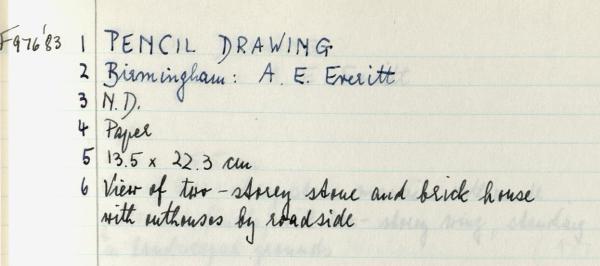 F976'83 1 PENCIL DRAWING
2 Birmingham: A. E. Everitt
3 N.D.
4 Paper
5 13.5 x 22.3 cm
6 View of two-storey stone and brick house
with outhouses by roadside